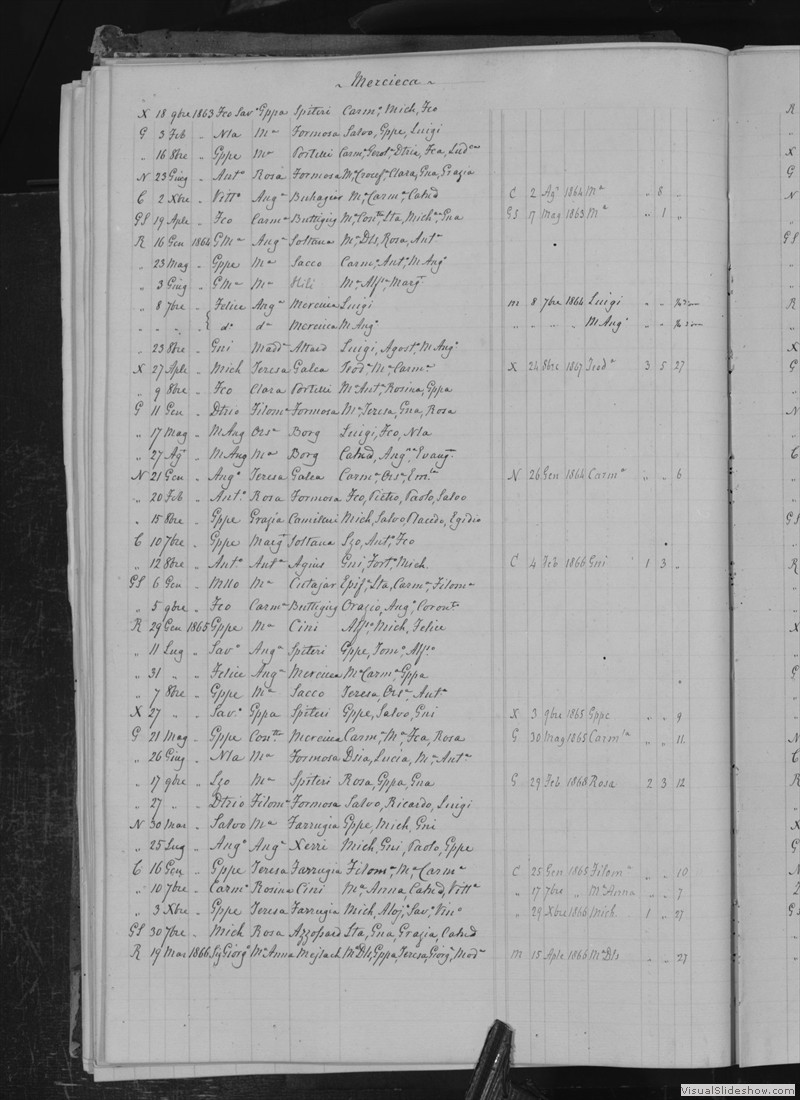 ~ Mercieca ~
X 18 9bre 1863 Fco Savo Gppa Spiteri Carmo, Mich, Fco
G 3 Feb " Nla Ma Formosa Salvo, Gppe, Luigi
" 16 8bre " Gppe Ma Portelli Carma, Dtria, Fca,
N 23 Giug " Anto Rosa Formosa Ma, Clara, Gna, Grazia
C 2 Xbre " Vitto Anga Buhagiar Ma, Carma, Catnd C 2 Ago 1864 Ma " 8 "
GS 19 Aple " Fco Carma Buttigieg Ma, Sta, Micha, Gna GS 17 Mag 1863 Ma " 1 "
R 16 Gen 1864 GMa Anga Soltana Ma Dls, Rosa, Anta
" 23 Mag " Gppe Ma Sacco Carmo, Anto, M Ango
" 3 Giug " GMa Ma Ma, Alfso, Margta
" 8 7bre " Felice Anga Mercieca Luigi m 8 7bre 1864 Luigi " "
" " " " do da Mercieca M Ango " " " " M Ango " "
" 23 8bre " Gni Madna Attard Luigi, Agosto, M Ango
X 27 Aple " Mich Teresa Galea Teoda, Ma Carma X 24 8bre 1867 Teoda 3 5 27
" 9 8bre " Fco Clara Portelli Ma Anta, Rosina, Gppa
G 11 Gen " Dtrio Filoma Formosa Ma Teresa, Gna, Rosa
" 17 Mag " M Ang Orsa Borg Luigi, Fco, Nla
" 27 Ago " M Ang Ma Borg Catnd,
N 21 Gen " Ango Teresa Galea Carmo, Orso, N 26 Gen 1864 Carmo " " 6
" 20 Feb " Anto Rosa Formosa Fco, Pietro, Paolo, Salvo
" 15 8bre " Gppe Grazia Camilleri Mich, Salvo, Placido, Egidio
C 10 7bre " Gppe Margta Soltana Lzo, Anto, Fco
" 12 8bre " Anto Anta Agius Gni, Forto, Mich C 4 Feb 1866 Gni 1 3 "
GS 6 Gen " Mllo Ma Cutajar Epifa, Sta, Carma, Filoma
" 5 9bre " Fco Carma Buttigieg Orazio, Ango,
R 29 Gen 1865 Gppe Ma Cini Alfso, Mich, Felice
" 11 Lug " Savo Anga Spiteri Gppe, Tomo, Alfso
" 31 " " Felice Anga Mercieca Ma Carma, Gppa
" 7 8bre " Gppe Ma Sacco Teresa, Orsa, Anta
X 27 " " Savo Gppa Spiteri Gppe, Salvo, Gni X 3 9bre 1865 Gppe " " 9
G 21 Mag " Gppe Contta Mercieca Carmla, Ma, Fca, Rosa G 30 Mag 1865 Carmla " " 11
" 26 Giug " Nla Ma Formosa Dtria, Lucia, Ma, Anta
" 17 9bre " Lzo Ma Spiteri Rosa, Gppa, Gna G 29 Feb 1868 Rosa 2 3 12
" 27 " " Dtrio Filoma Formosa Salvo, Ricardo, Luigi
N 30 Mar " Salvo Ma Farrugia Gppe, Mich, Gni
" 25 Lug " Ango Anga Xerri Mich, Gni, Paolo, Gppe
C 16 Gen " Gppe Teresa Farrugia Filoma, Ma Carma C 25 Gen 1865 Filoma " " 10
" 10 7bre " Carmo Rosina Cini Ma, Anna, Catnd, Vitta " 17 7bre " Ma Anna " " 7
" 3 Xbre " Gppe Teresa Farrugia Mich, Alojo, Savo, Vino " 29 Xbre 1866 Mich 1 " 27
GS 30 7bre " Mich Rosa Azzopard Sta, Gna, Grazia, Catnd
R 19 Mar 1866 Sig Giorgo Ma Anna Mejlach Ma Dls, Gppa, Teresa, Giorga, Madna m 15 Aple 1866 Ma Dls " " 27
R
"
X
G
N
"
GS
"
R
X
G
N
C
GS
R
X
G
N
C
R
X
G
N
GS
VisualSlideshow.com